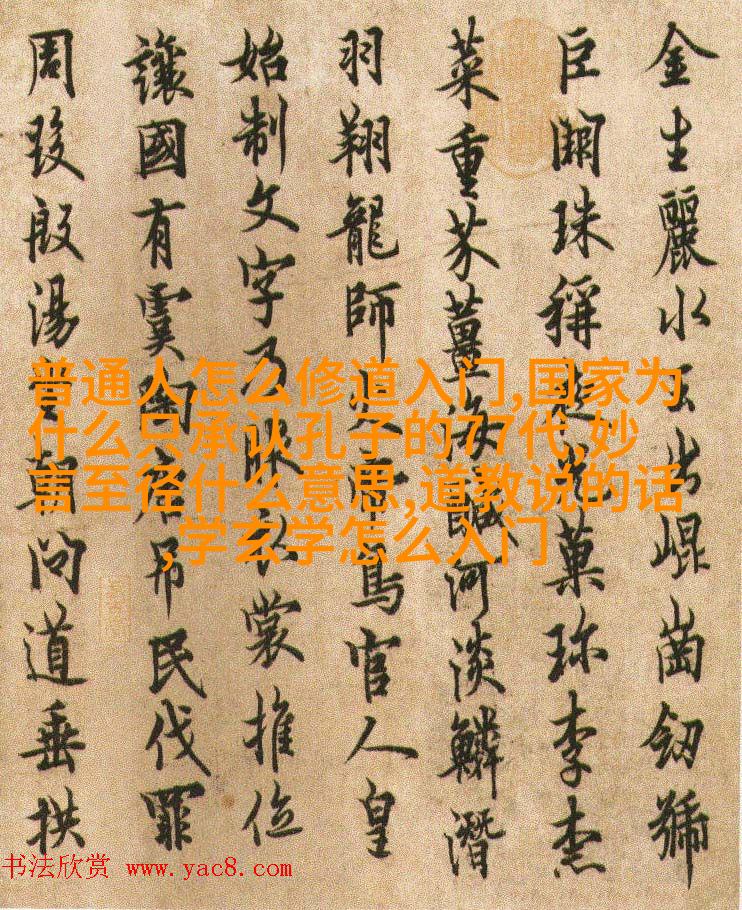 金生麗水玉出崐崗劒號
巨闕珠稱夜光菓珎李柰
菜重芥薑海鹹河淡鱗潛
羽翔龍師火帝鳥官人皇
始制文字乃服衣裳推位
讓國有虞陶唐吊民伐罪
周發殷湯坐朝問道垂拱
普通人怎么修道入门,国家为
什么只承认孔子的77代,妙
言至径什么意思,道教说的话
,学玄学怎么入门
书法欣赏 www.yac8.com